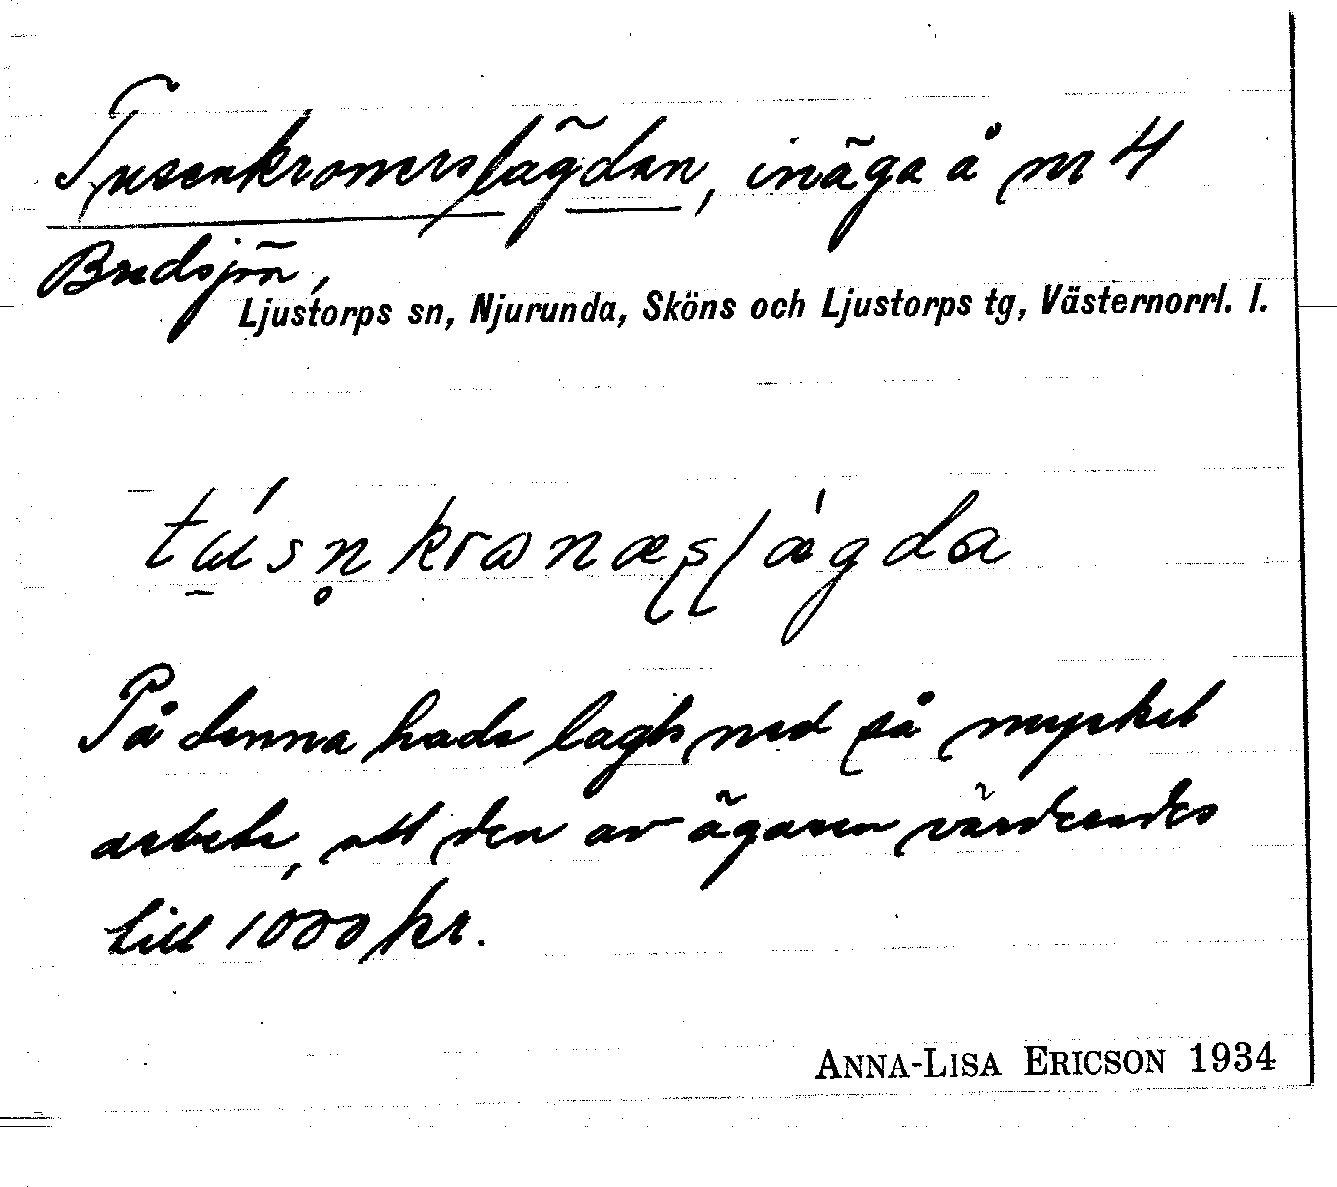 Tusenkronerslägdan, inäga å nr 4
Bredsjön,
Ljustorps sn, Njurunda, Sköns och Ljustorps tg, Västernorrl. l.
På denna hade lagts ned så mycket
arbete, att den av ägaren värderades
till 1000 kr.
ANNA-LISA ERICSON 1934